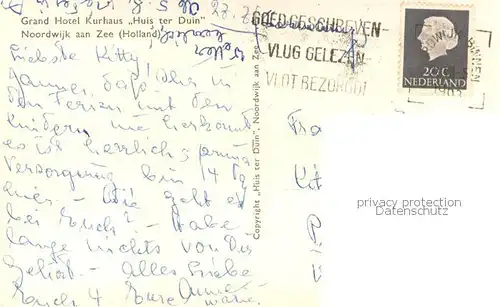 Grand Hotel Kurhaus „Huis ter Duin”
Noordwijk aan Zee (Holland)
Liebste Kitty!
Jammer, daß Ihr in
den Ferien mit den
Kindern nie herkommt
es ist herrlich & prima
Versorgung bin 14 Tg
hier. – Wie geht es
bei Euch? – Habe
lange nichts von Dir
gehört. – Alles Liebe
Euch 4 Eure
Copyright „Huis ter Duin”, Noordwijk aan Zee
GOED GESCHREVEN-
VLUG GELEZEN-
VLOT BEZORGD!
NOORDWIJK-BINNEN
20C
NEDERLAND
privacy protection
Datenschutz